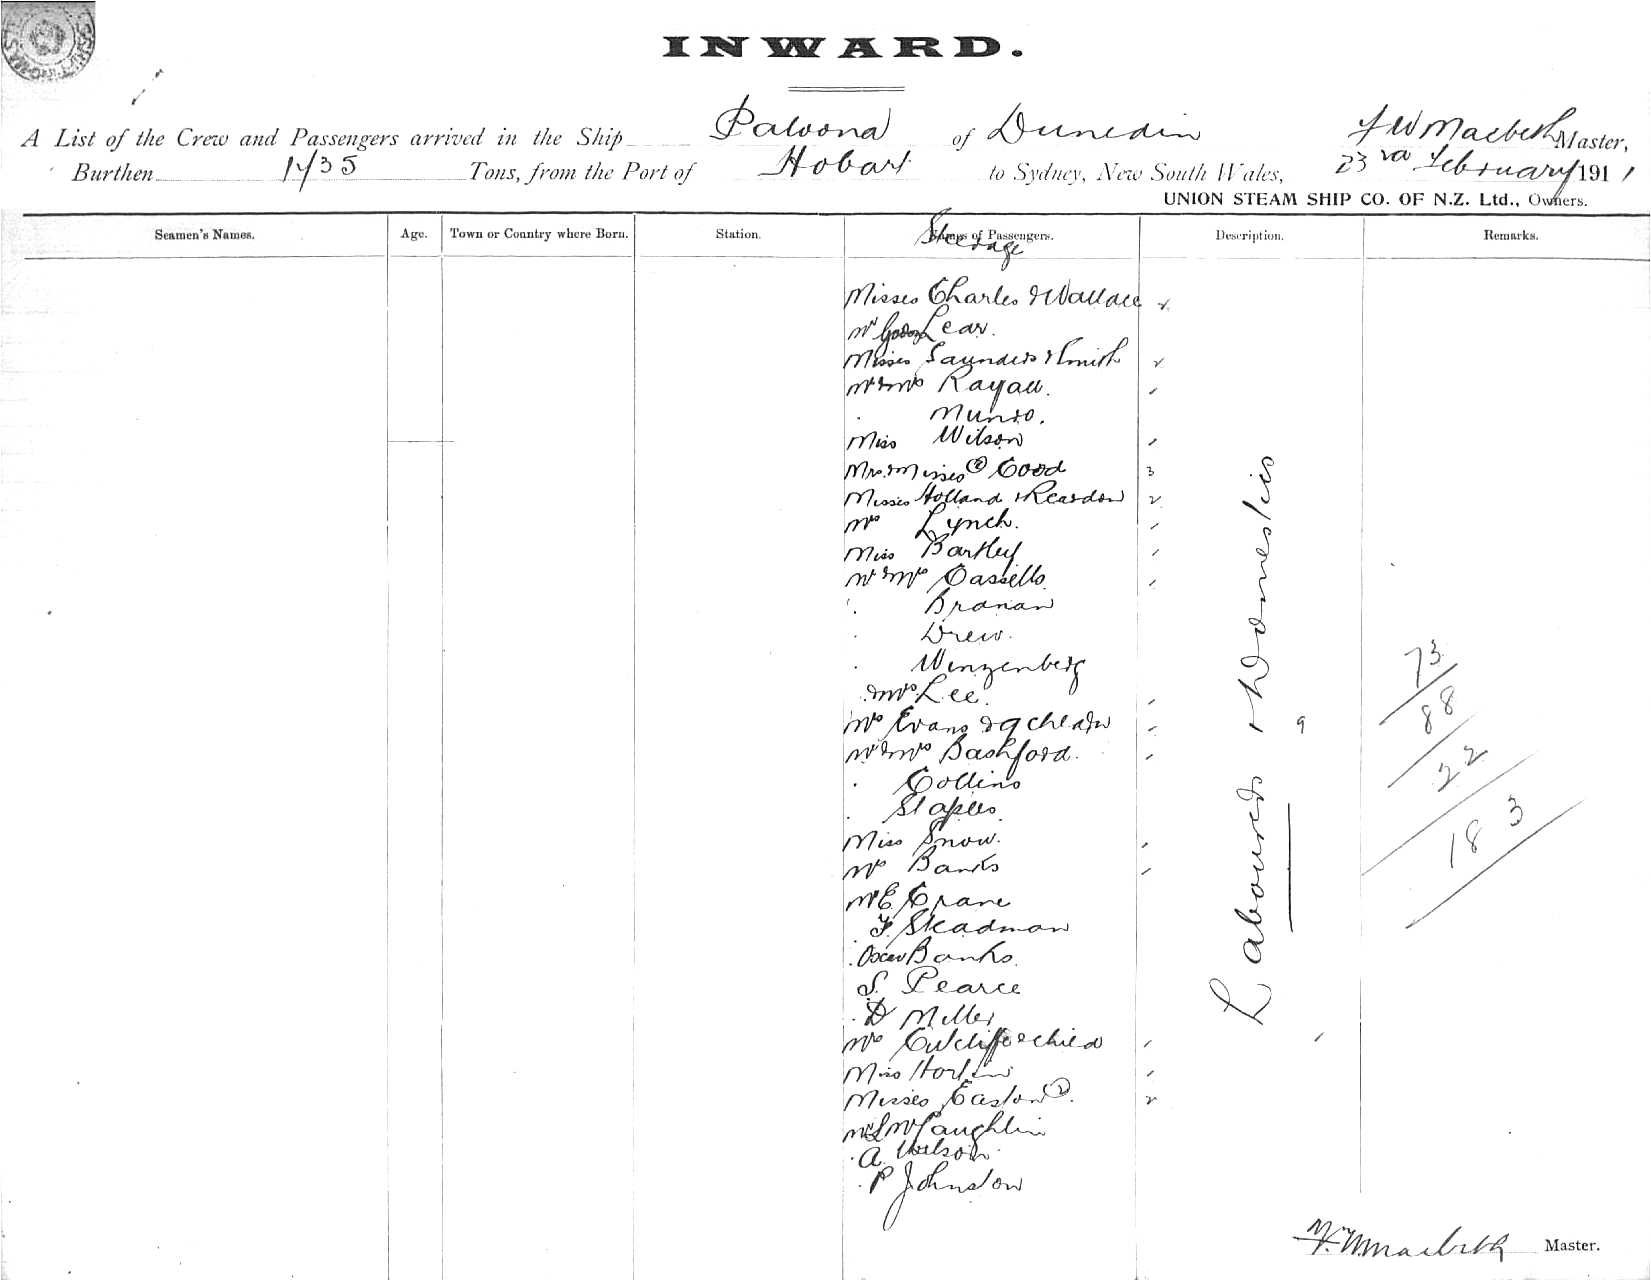 INWARD.
A List of the Crew and Passengers arrived in the Ship Paloona of Dunedin F W Macbeth Master,
Burthen 1735 Tons, from the Port of Hobart to Sydney, New South Wales, 23rd February 1911
UNION STEAM SHIP CO. OF N.Z. Ltd., Owners.
Seamen's Names. Age. Town or Country where Born. Station. Names of Passengers. Description. Remarks.
Steerage
Misses Charles & Wallace 2
Mr Lear.
Misses Saunders & Smith 2
Mr & Mrs Rayall. 1
. Munro.
Miss Wilson 1
Mrs & Misses (2) Good 3
Misses Holland & Reardon 2
Mrs Lynch. 1
Miss Bartley 1
Mr & Mrs Cassells 1
. Branan
. Drew.
. Winzenberg
. & Mrs Lee. 1
Mrs Evans & 9 children 1 9
Mr & Mrs Bashford. 1
. Collins
. Staples
Miss Snow. 1
Mrs Banks 1
Mr E. Crane
. F. Steadman
. Oscar Banks.
S. Pearce
. D Miller
Mrs Cutcliffe & child 1 1
Miss 1
Misses Easton (2). 2
Mr L McLaughlin
. A. Wilson
. P Johnston
Labourers & Domestics
73
88
22
183
F. W. Macbeth Master.